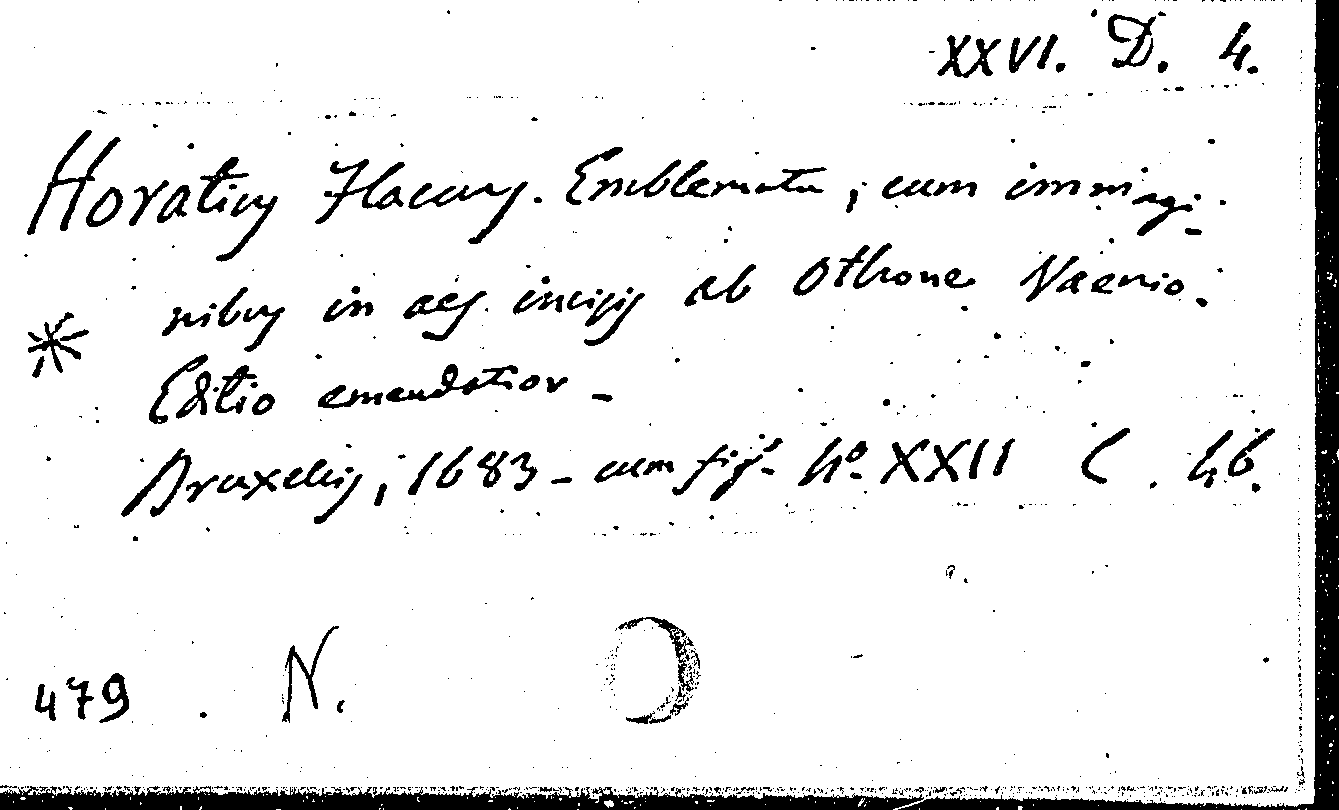 XXVI. D. 4.
Horatius Flaccus. Emblemata, cum immagi-
nibus in aes incisis ab Othone Vaenio.
* Editio emendatior -
Bruxellis, 1683 - cum fig. 4º. XXII C. 46.
479 . N.